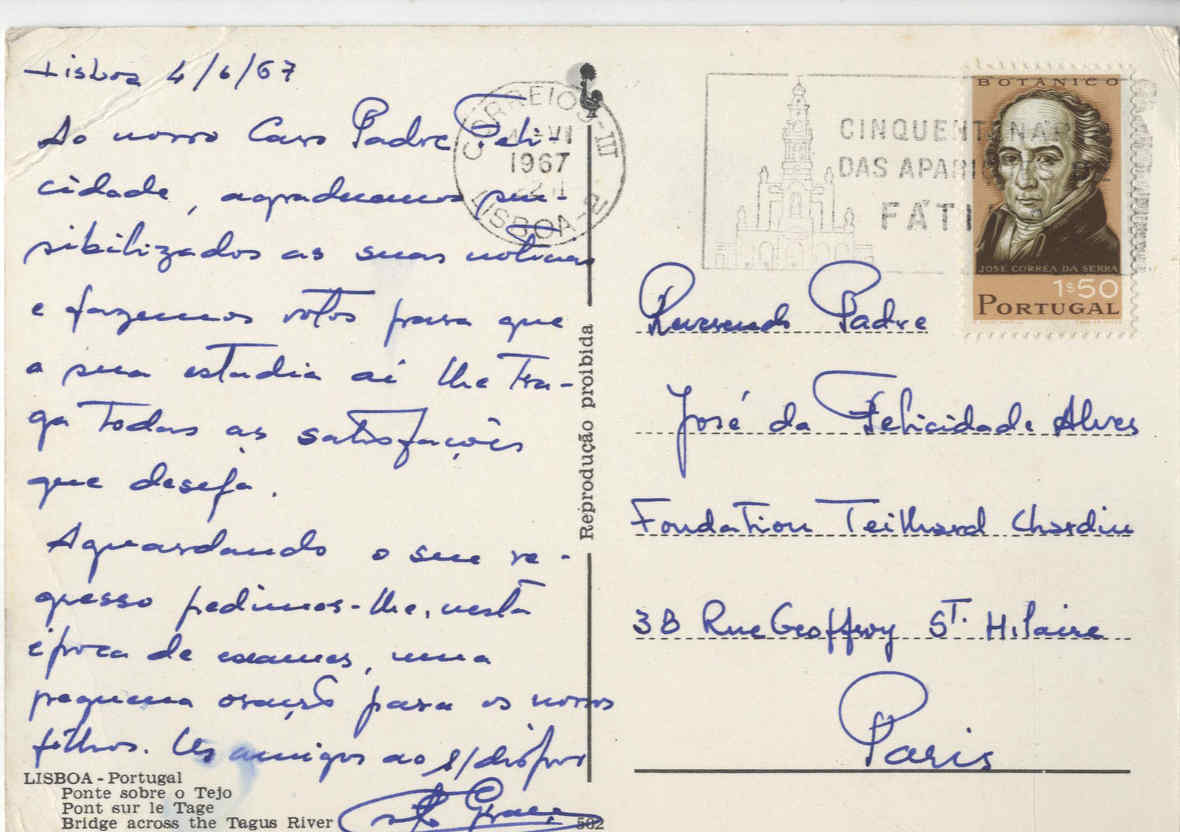 Lisboa 4/6/67
Ao nosso Caro Padre Feli-
cidade, agradecemos sen-
sibilizados as suas notícias
e fazemos votos para que
a sua estadia aí lhe tra-
ga todas as satisfações
que deseja.
Aguardando o seu re-
gresso pedimos-lhe, nesta
época de exames, uma
pequena oração para os nossos
filhos. Us amigos ao s/dispor
LISBOA - Portugal
Ponte sobre o Tejo
Pont sur le Tage
Bridge across the Tagus River
502
Reprodução proibida
CORREIOS-III
VI
1967
LISBOA-2
CINQUENTENAR
DAS APARI
FÁTI
BOTÂNICO
JOSÉ CORRÊA DA SERRA
1$50
PORTUGAL
Reverendo Padre
José da Felicidade Alves
Fondation Teilhard Chardin
38 Rue Geoffroy St. Hilaire
Paris